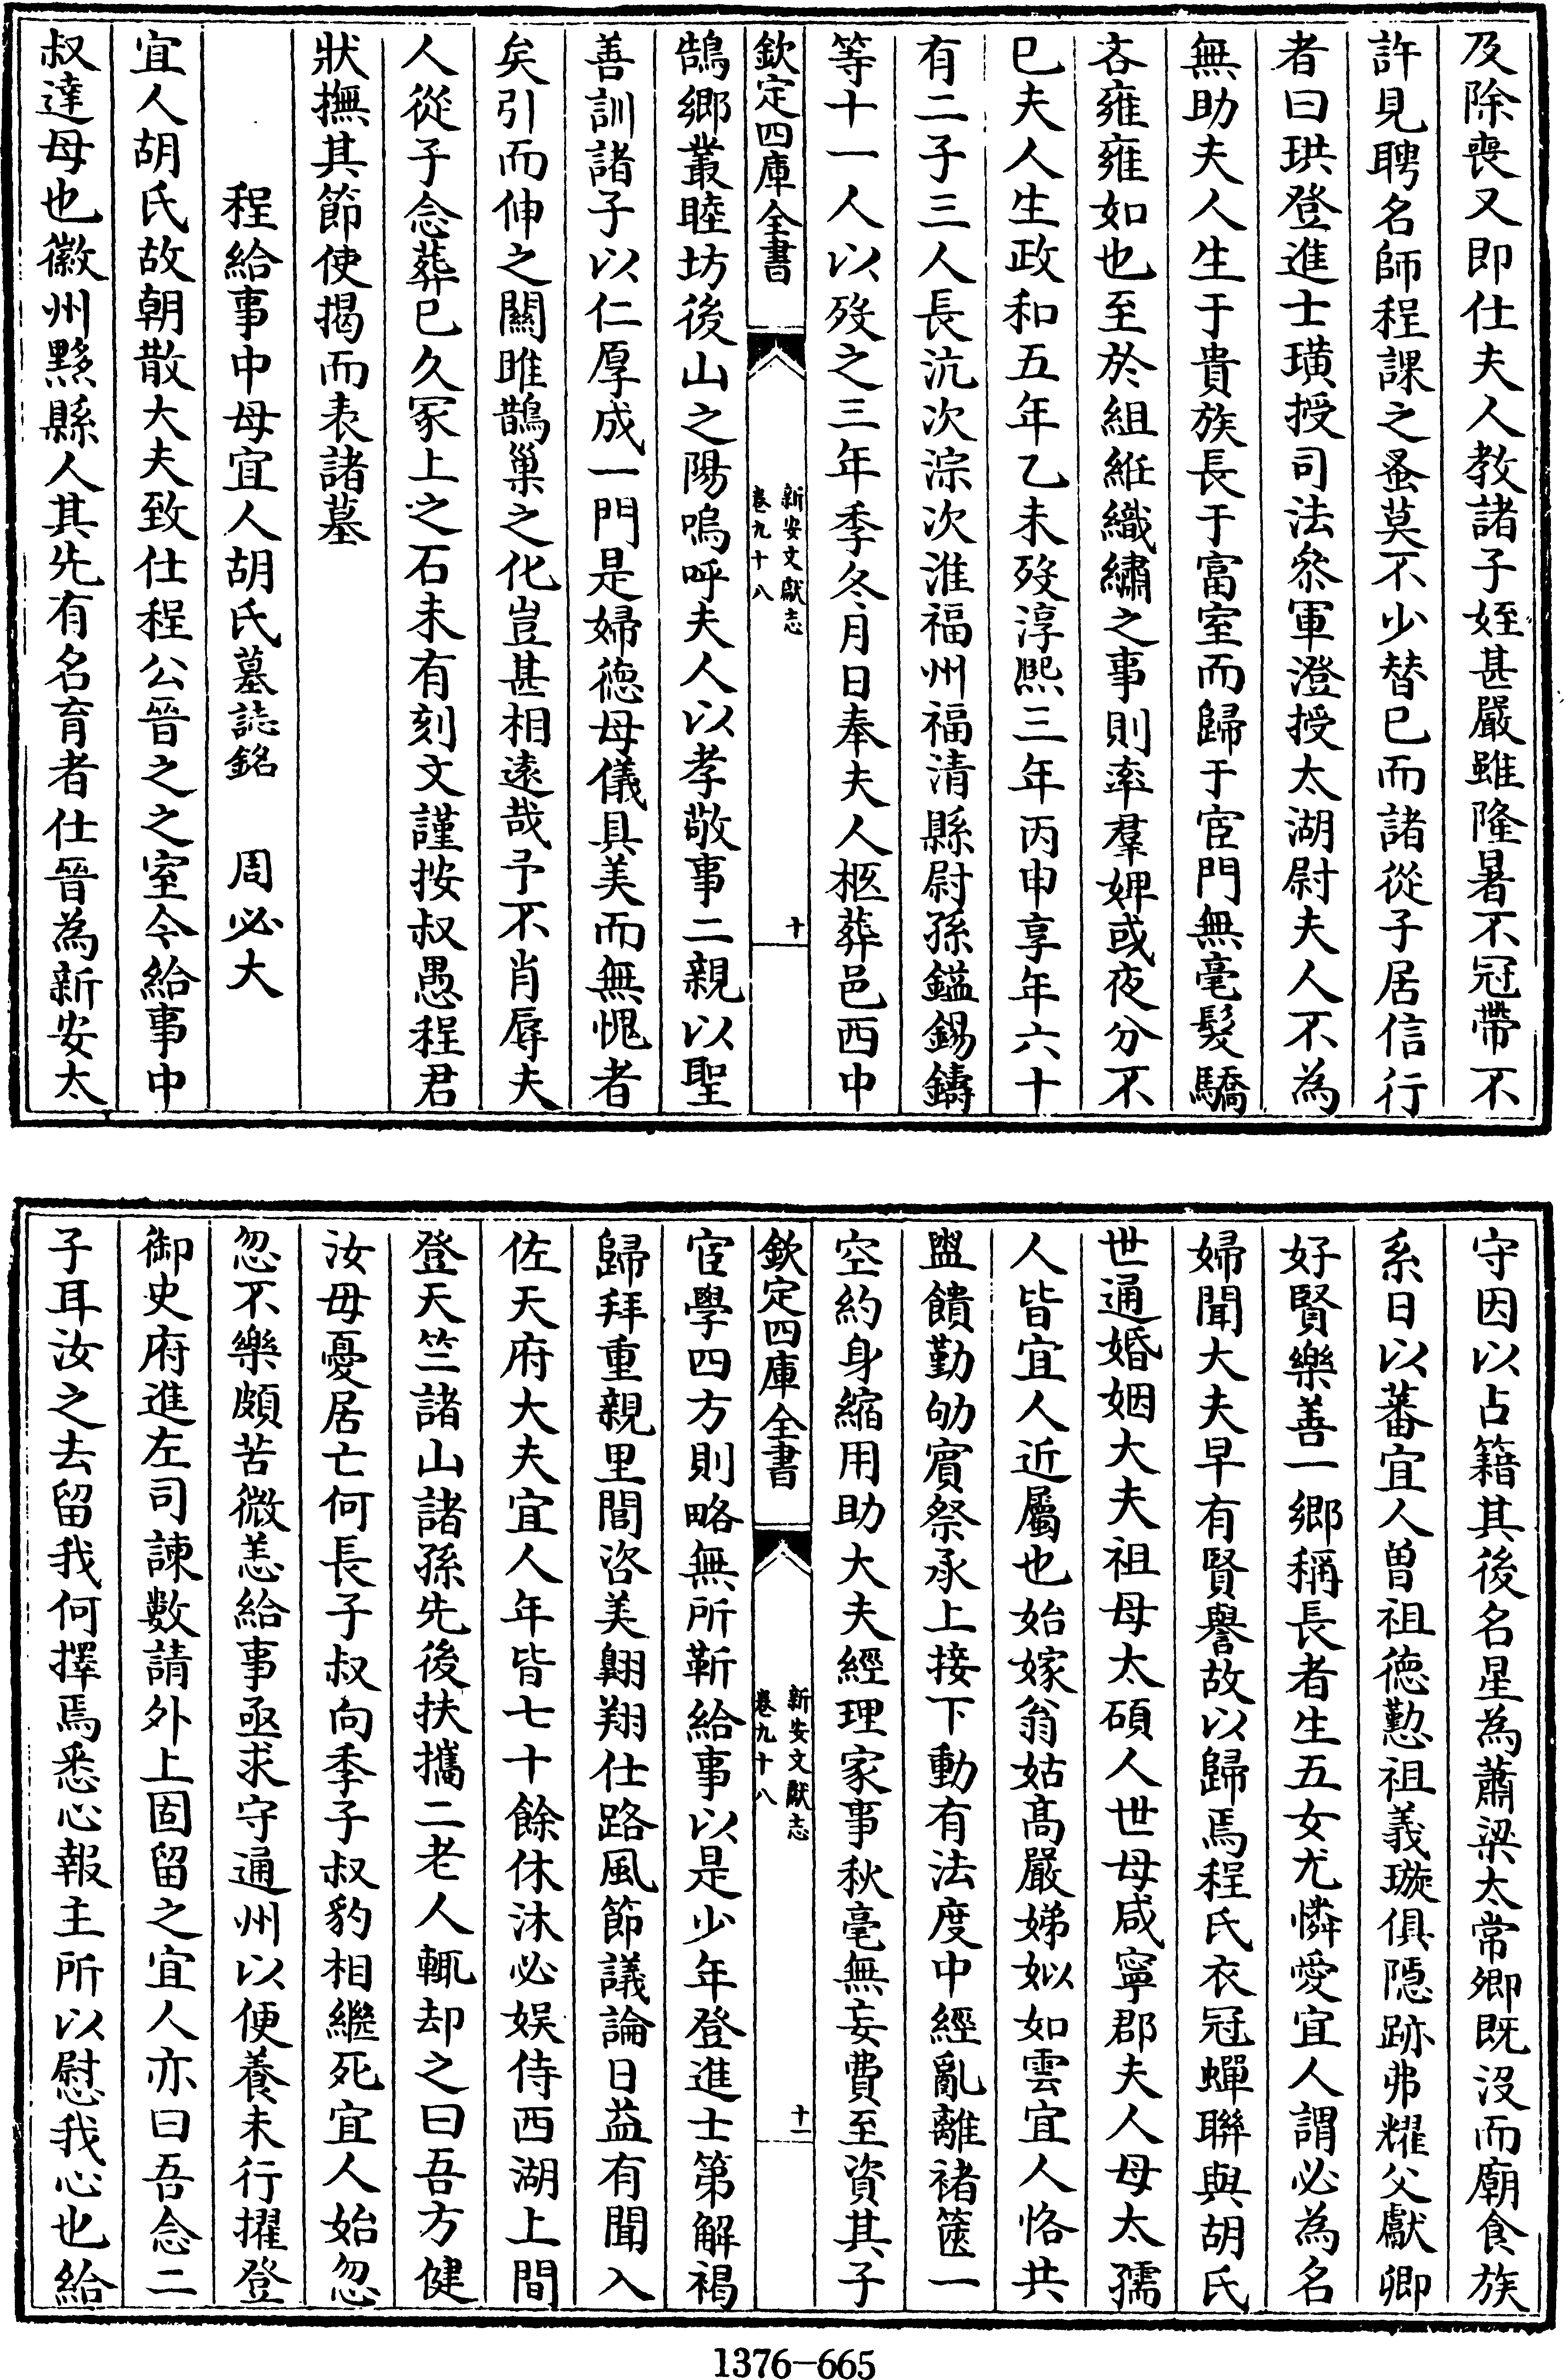 及除喪又即仕夫人教諸子姪甚嚴雖隆暑不冠帶不
許見聘名師程課之蚤莫不少替已而諸從子居信行
者曰珙登進士璜授司法叅軍澄授太湖尉夫人不為
無助夫人生于貴族長于富室而歸于宦門無毫髮驕
吝雍雍如也至於組絍織繡之事則率羣婢或夜分不
已夫人生政和五年乙未歿淳熙三年丙申享年六十
有二子三人長沆次淙次淮福州福清縣尉孫鎰錫鑄
等十一人以歿之三年季冬月日奉夫人柩葬邑西中
欽定四庫全書
新安文獻志
卷九十八
十
鵠鄉叢睦坊後山之陽嗚呼夫人以孝敬事二親以聖
善訓諸子以仁厚成一門是婦德母儀具美而無愧者
矣引而伸之關雎鵲巢之化豈甚相遠哉予不肖辱夫
人從子念葬已久冢上之石未有刻文謹按叔愚程君
狀撫其節使揭而表諸墓
程給事中母宜人胡氏墓誌銘　周必大
宜人胡氏故朝散大夫致仕程公晉之之室今給事中
叔達母也徽州黟縣人其先有名育者仕晉為新安太
守因以占籍其後名星為蕭梁太常卿既沒而廟食族
系日以蕃宜人曽祖德懃祖義璇俱隱跡弗耀父獻卿
好賢樂善一鄉稱長者生五女尤憐愛宜人謂必為名
婦聞大夫早有賢譽故以歸焉程氏衣冠蟬聯與胡氏
世通婚姻大夫祖母太碩人世母咸寧郡夫人母太孺
人皆宜人近屬也始嫁翁姑高嚴娣姒如雲宜人恪共
盥饋勤劬賓祭承上接下動有法度中經亂離褚篋一
空約身縮用助大夫經理家事秋毫無妄費至資其子
欽定四庫全書
新安文獻志
卷九十八
十一
宦學四方則略無所靳給事以是少年登進士第解褐
歸拜重親里閭咨美翺翔仕路風節議論日益有聞入
佐天府大夫宜人年皆七十餘休沐必娛侍西湖上間
登天竺諸山諸孫先後扶攜二老人輒却之曰吾方健
汝毋憂居亡何長子叔向季子叔豹相繼死宜人始忽
忽不樂頗苦微恙給事亟求守通州以便養未行擢登
御史府進左司諫數請外上固留之宜人亦曰吾念二
子耳汝之去留我何擇焉悉心報主所以慰我心也給
1376-665